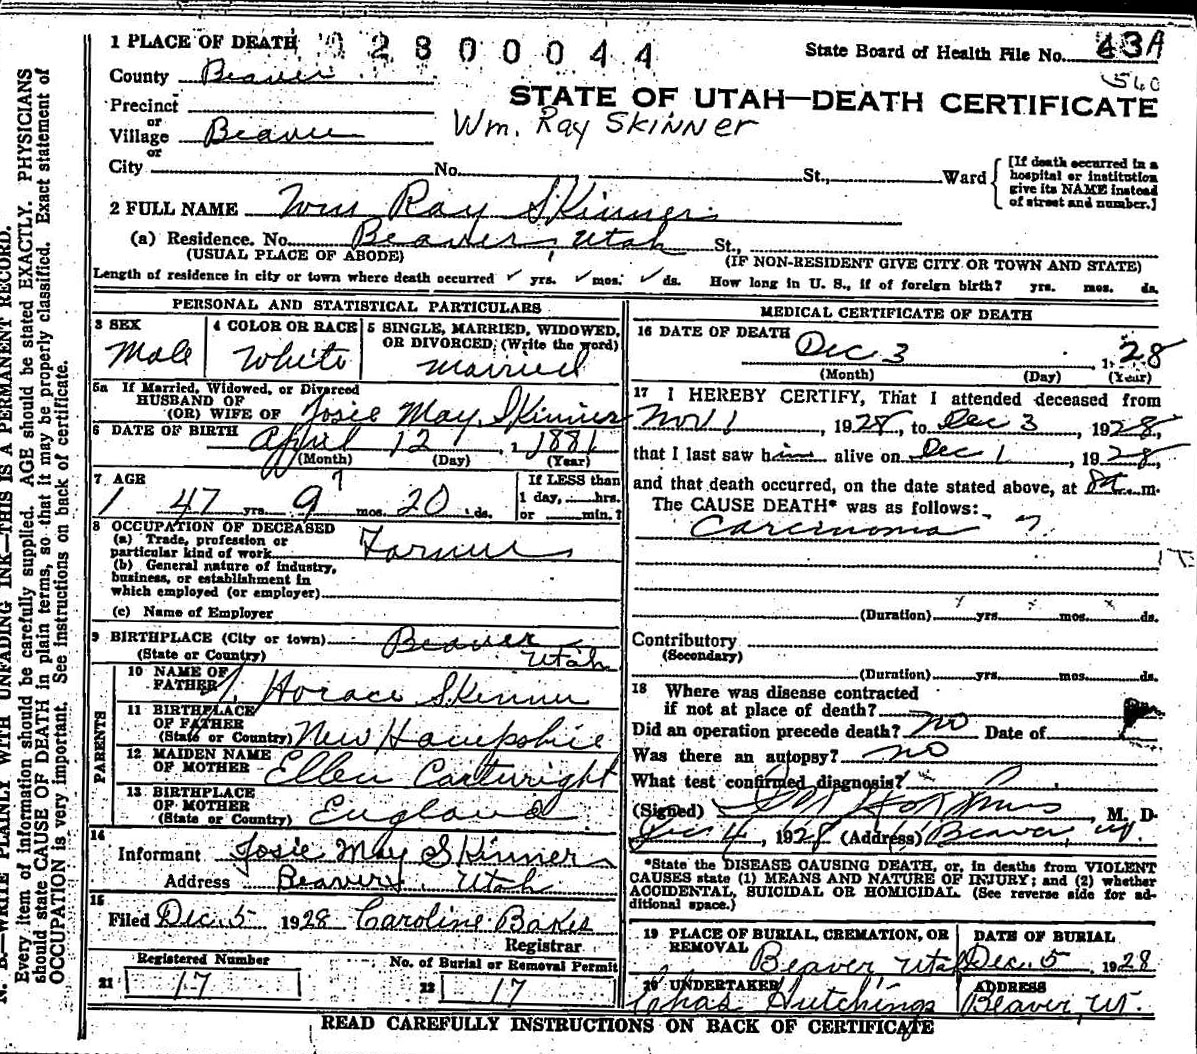 1 PLACE OF DEATH 02800044
State Board of Health File No. 43A
560
County Beaver
STATE OF UTAH—DEATH CERTIFICATE
Precinct
or
Village Beaver
Wm. Ray SKINNER
or
City No. St., Ward
[If death occurred in a
hospital or institution
give its NAME instead
of street and number.]
2 FULL NAME Wm Ray Skinner
(a) Residence. No. Beaver, Utah St.,
(USUAL PLACE OF ABODE) (IF NON-RESIDENT GIVE CITY OR TOWN AND STATE)
Length of residence in city or town where death occurred ✓ yrs. ✓ mos. ✓ ds. How long in U. S., if of foreign birth? yrs. mos. ds.
PERSONAL AND STATISTICAL PARTICULARS
3 SEX
Male
4 COLOR OR RACE
White
5 SINGLE, MARRIED, WIDOWED,
OR DIVORCED, (Write the word)
Married
5a If Married, Widowed, or Divorced
HUSBAND OF
(OR) WIFE OF Josie May Skinner
6 DATE OF BIRTH April 12, 1881
(Month) (Day) (Year)
7 AGE
47 yrs. 9 7 mos. 20 ds.
If LESS than
1 day, hrs.
or min.?
8 OCCUPATION OF DECEASED
(a) Trade, profession or
particular kind of work Farmer
(b) General nature of industry,
business, or establishment in
which employed (or employer)
(c) Name of Employer
9 BIRTHPLACE (City or town) Beaver
(State or Country) Utah
PARENTS
10 NAME OF
FATHER Horace Skinner
11 BIRTHPLACE
OF FATHER
(State or Country) New Hampshire
12 MAIDEN NAME
OF MOTHER Ellen Cartwright
13 BIRTHPLACE
OF MOTHER
(State or Country) England
14
Informant Josie May Skinner
Address Beaver, Utah
15
Filed Dec. 5 1928 Caroline Bakes
Registrar
Registered Number
21 17
No. of Burial or Removal Permit
22 17
MEDICAL CERTIFICATE OF DEATH
16 DATE OF DEATH
Dec 3, 1928
(Month) (Day) (Year)
17 I HEREBY CERTIFY, That I attended deceased from
Nov 1, 1928, to Dec 3, 1928,
that I last saw him alive on Dec 1, 1928,
and that death occurred, on the date stated above, at 8a m.
The CAUSE DEATH* was as follows:
Carcinoma ?
(Duration) yrs. mos. ds.
Contributory
(Secondary)
(Duration) yrs. mos. ds.
18 Where was disease contracted
if not at place of death?
Did an operation precede death? no Date of
Was there an autopsy? no
What test confirmed diagnosis?
(Signed) M. D.
Dec 4, 1928 (Address) Beaver, Ut.
*State the DISEASE CAUSING DEATH, or, in deaths from VIOLENT
CAUSES state (1) MEANS AND NATURE OF INJURY; and (2) whether
ACCIDENTAL, SUICIDAL OR HOMICIDAL. (See reverse side for ad-
ditional space.)
19 PLACE OF BURIAL, CREMATION, OR
REMOVAL Beaver, Utah
DATE OF BURIAL
Dec. 5, 1928
20 UNDERTAKER
Chas Hutchings
ADDRESS
Beaver, Ut.
READ CAREFULLY INSTRUCTIONS ON BACK OF CERTIFICATE
N. B.—WRITE PLAINLY WITH UNFADING INK—THIS IS A PERMANENT RECORD.
Every item of information should be carefully supplied. AGE should be stated EXACTLY. PHYSICIANS
should state CAUSE OF DEATH in plain terms, so that it may be properly classified. Exact statement of
OCCUPATION is very important. See instructions on back of certificate.